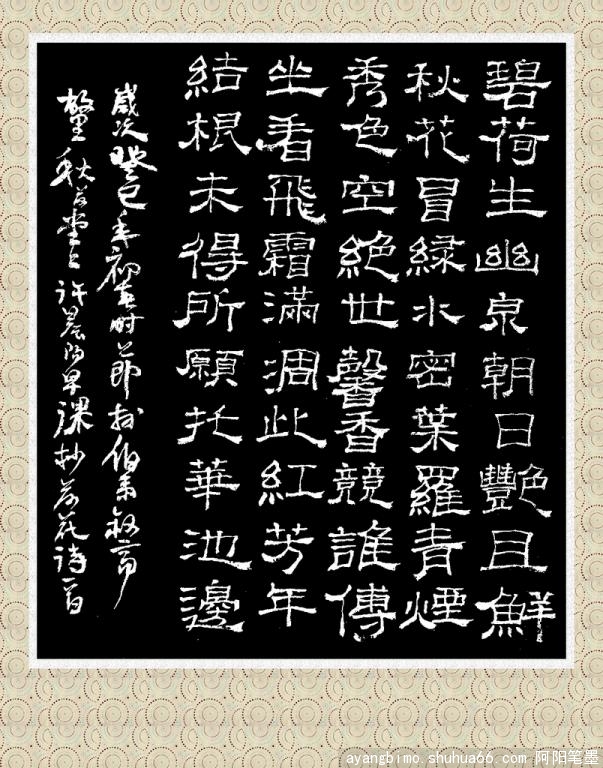 碧荷生幽泉朝日艷且鮮
秋花冒緑水密葉羅青煙
秀色空絶世馨香競誰傳
坐看飛霜滿凋此紅芳年
結根未得所願托華池邊
歲次癸巳年初春時節於
早課抄荷花詩一首
ayangbimo.shuhua66.com 阿阳笔墨